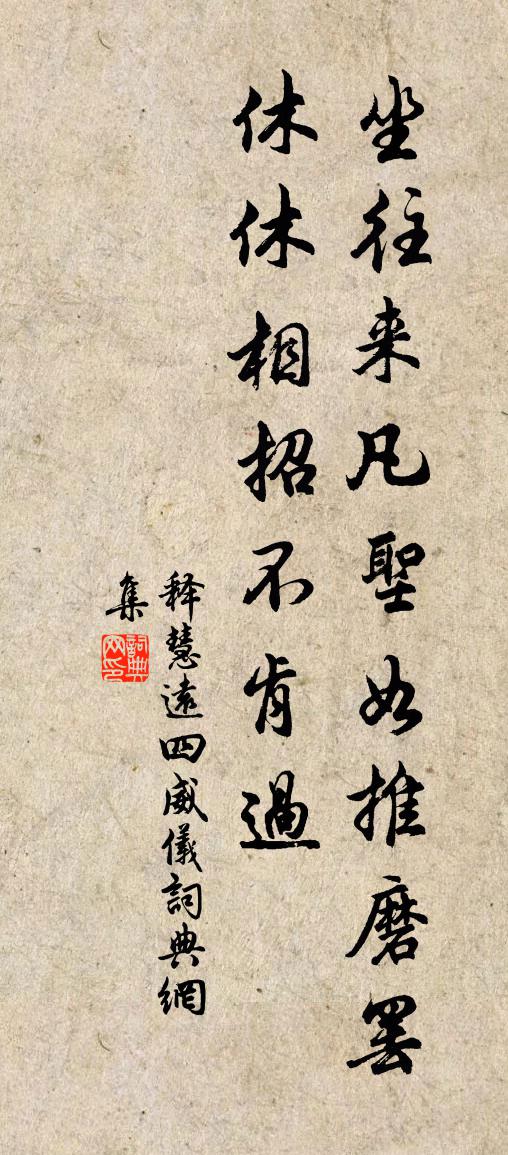 坐往来凡聖如推磨罢
休休相招不肯過
释慧遠四威儀詞典網
集
詞典
网印